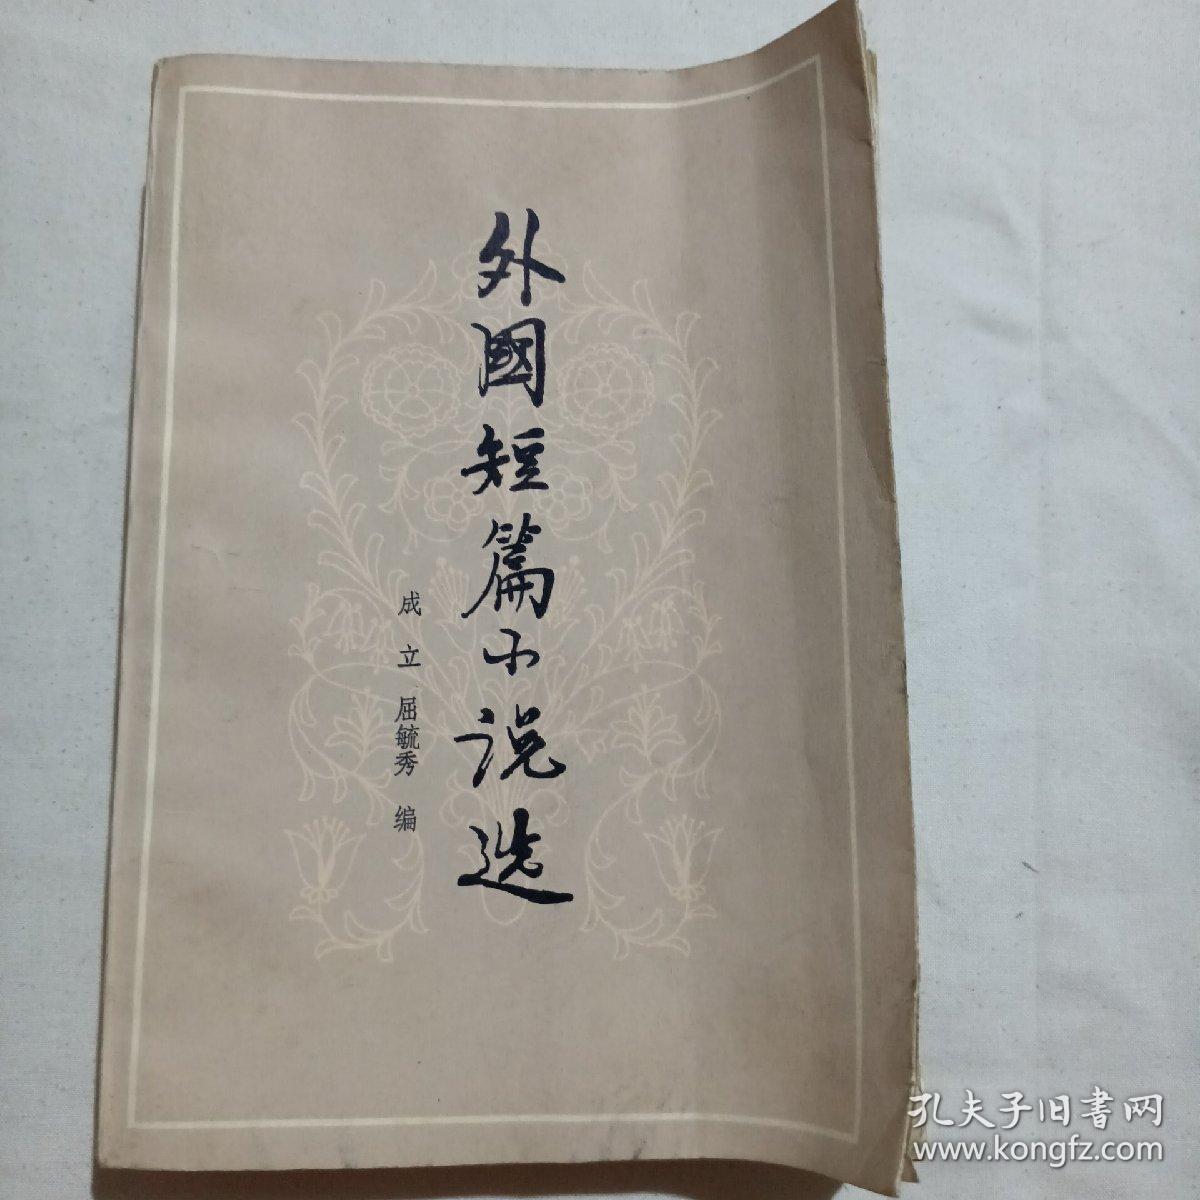 外國短篇小说选
成立 屈毓秀 编
孔夫子旧書网
www.kongfz.com